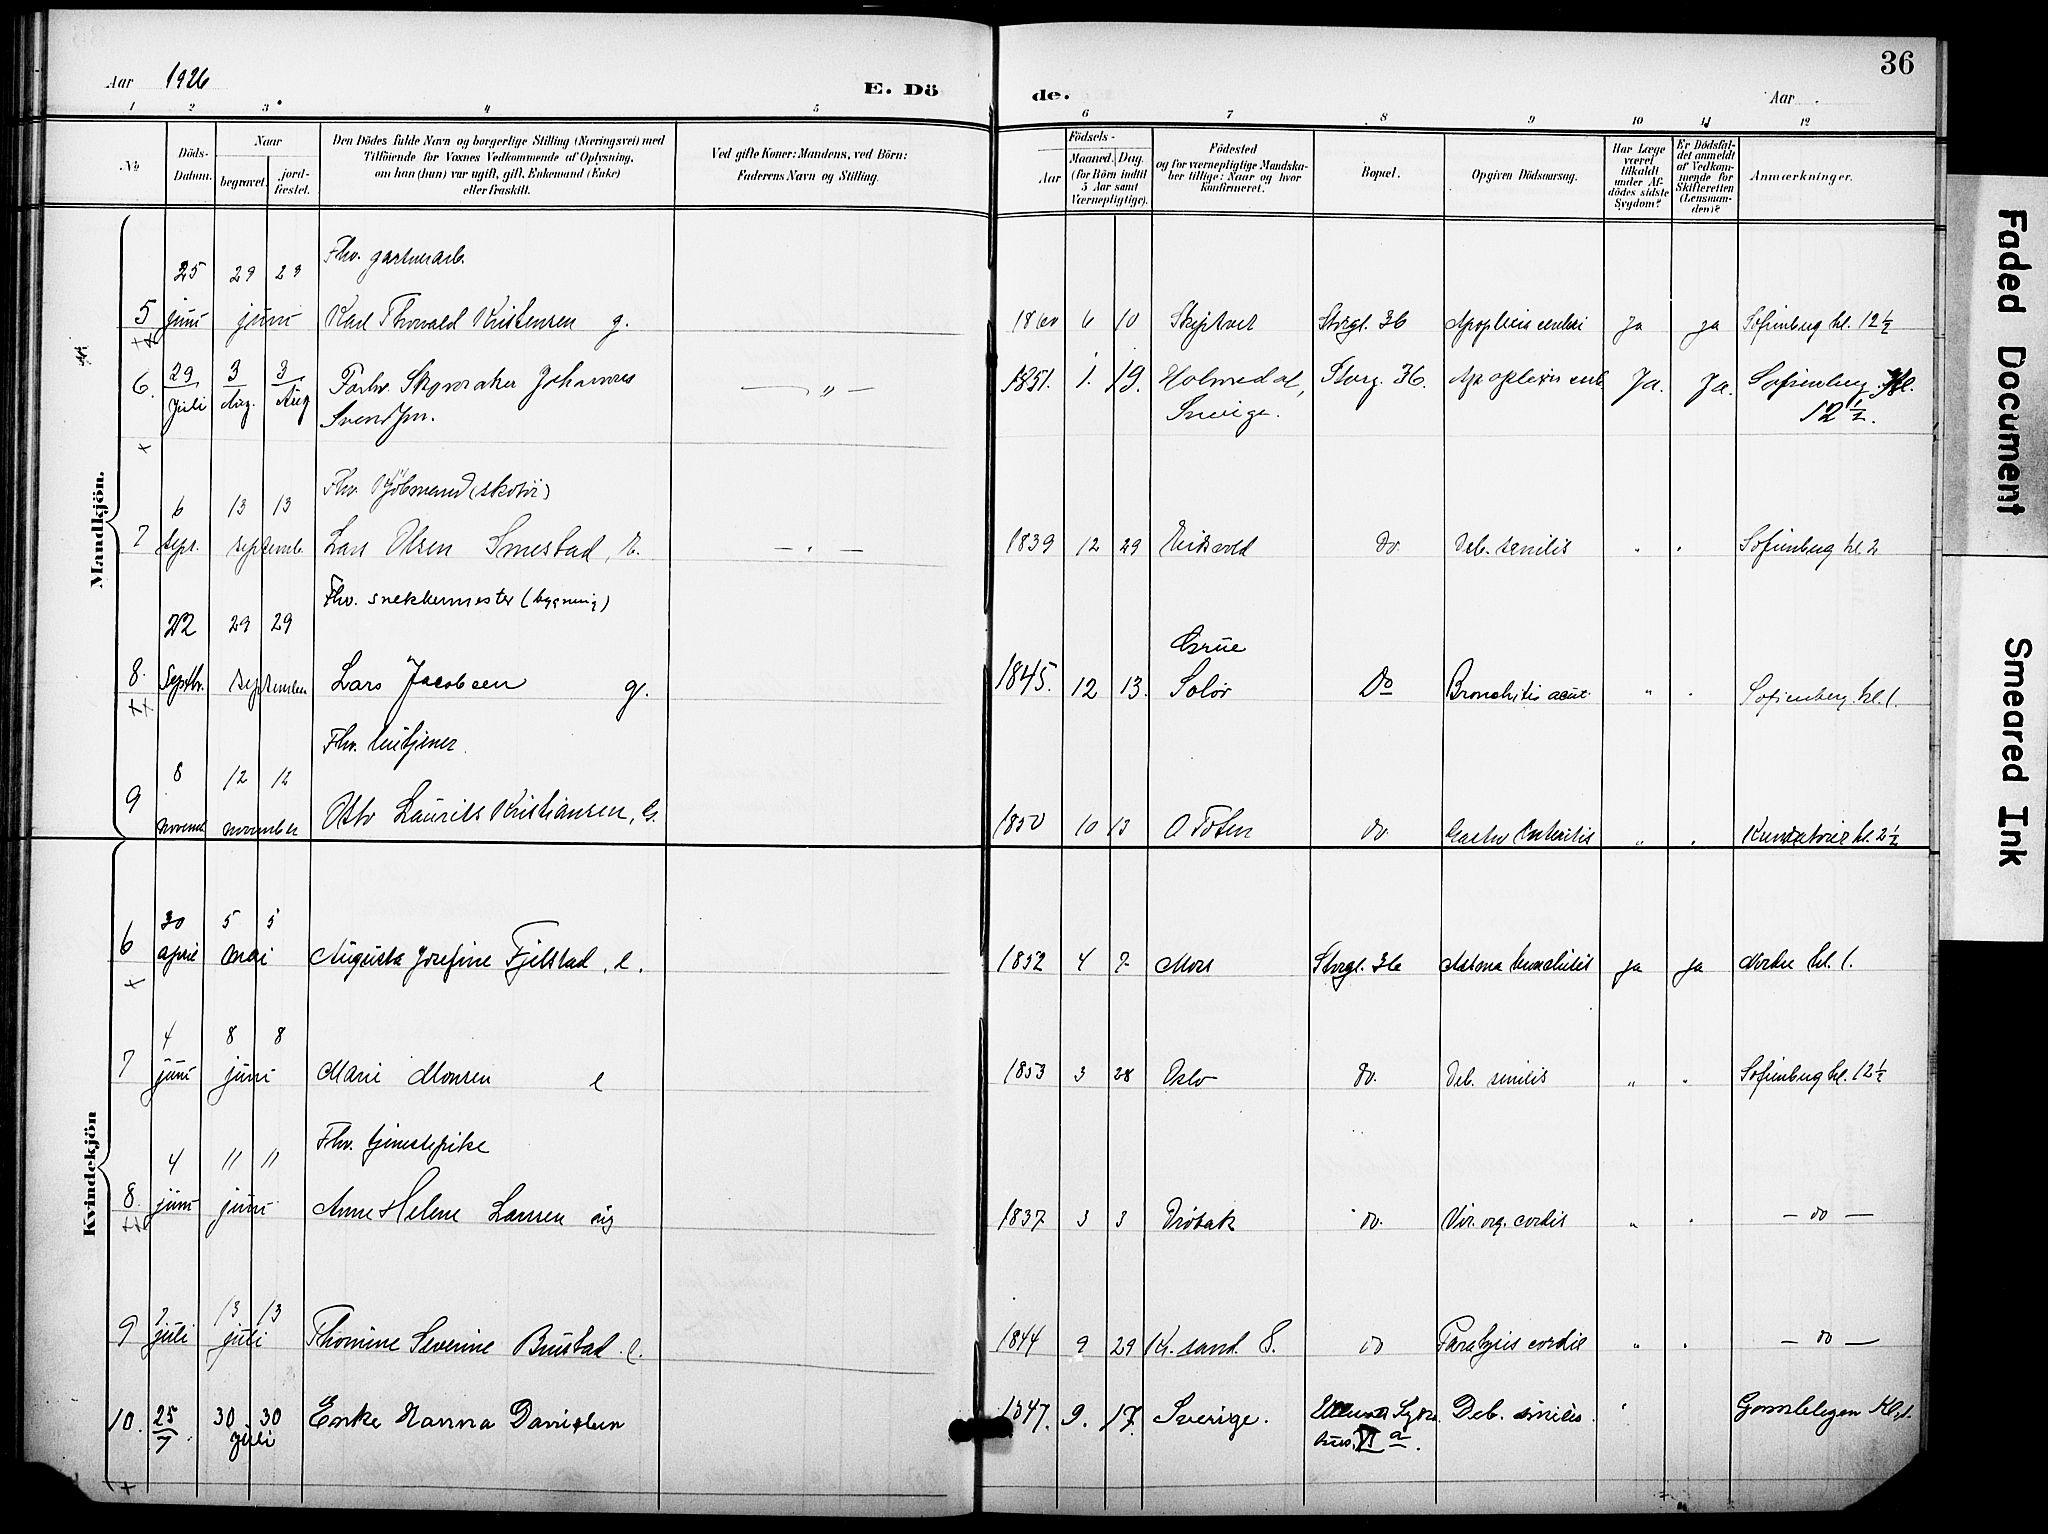 Aar 1926
E. Dö
de.
Aar
36
1 2 3 4 5 6 7 8 9 10 11 12
No.
Döds-Datum.
Naar begravet. jordfæstet.
Den Dödes fulde Navn og borgerlige Stilling (Næringsvei) med Tilföiende for Voxnes Vedkommende af Oplysning, om han (hun) var ugift, gift, Enkemand (Enke) eller fraskilt.
Ved gifte Koner: Mandens, ved Börn: Faderens Navn og Stilling.
Födsels-
Aar
Maaned. Dag. (for Börn indtil 5 Aar samt Værnepligtige).
Födested og for værnepligtige Mandskaber tillige: Naar og hvor konfirmeret.
Bopæl.
Opgiven Dödsaarsag.
Har Læge været tilkaldt under Afdödes sidste Sygdom?
Er Dödsfaldet anmeldt af Vedkommende for Skifteretten (Lensmanden)?
Anmærkninger.
Mandkjön.
Fhv. gartnerarb.
5 25 juni 29 29 juni Karl Thorvald Kristensen g. 1860 6 10 Skiptvet Storgt. 36 Apoplexis cerebri Ja ja Sofienberg kl. 12 ½
6. 29 Juli 3 Aug. 3 Aug Forhv. Skomaker Johannes — „ — 1851. 1. 19. Holmedal, Storg. 36. Apoplexis cerb Ja. Ja. Sofienberg Kl.
Svendsen. Sverige. 12 ½.
Fhv. Kjöbmand (skotöi)
7 6 sept. 13 13 septemb. Lars Olsen Smestad, e. — „ — 1839 12 29 Eidsvold do. Deb. senilis „ „ Sofienberg kl. 2
Fhv. snekkermester (bygning)
Grue
8. 22 Septbr. 29 29 september Lars Jacobsen g. 1845. 12 13. Solör Do Bronchitis acut. „ „ Sofienberg. kl. 1.
9 8 novemb 12 12 november Otto Laurits Kristiansen, G. 1850 10 13 O Toten do. Gastro Enteritis „ „ Krematoriet kl. 2 ½
Kvindekjön
6 30 april 5 5 mai Augusta Josefine Fjelstad, e. 1852 4 7 Moss Storgt. 36 Astma bronchitis ja ja Nordre kl. 1.
7 4 juni 8 8 juni Marie Monsen e 1853 3 28 Oslo do. Deb. senilis „ „ Sofienberg kl. 12 ½
Fhv. tjenestepike
8. 4 juni 11 11 juni Anne Helene Larsen ug 1837 3 3 Dröbak do. Vit. org. cordis „ „ — do —
9 7 juli 13 13 juli Thomine Severine Bustad e. 1844 9 29 Kr. sand. S. do Paralysis cordis „ „ — do —
10. 25/7 30 30 juli Enke Hanna Danielsen 1847. 9. 17. Sverige. Ullevaal Sykehus. VI a. Deb. senilis. Gamlebyen Kl. 1.
Faded Document
Smeared Ink